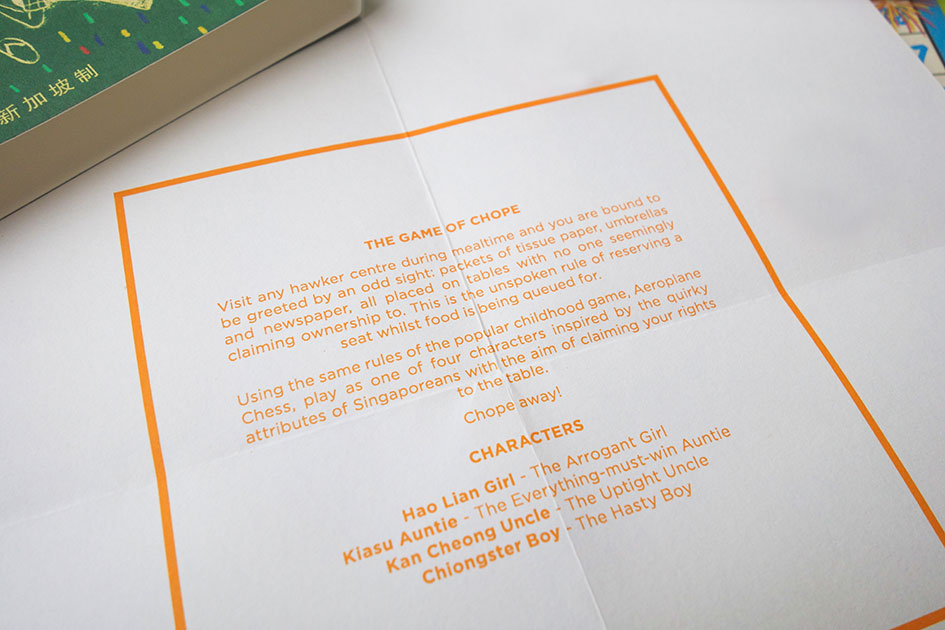 新加坡制
THE GAME OF CHOPE
Visit any hawker centre during mealtime and you are bound to
be greeted by an odd sight: packets of tissue paper, umbrellas
and newspaper, all placed on tables with no one seemingly
claiming ownership to. This is the unspoken rule of reserving a
seat whilst food is being queued for.
Using the same rules of the popular childhood game, Aeroplane
Chess, play as one of four characters inspired by the quirky
attributes of Singaporeans with the aim of claiming your rights
to the table.
Chope away!
CHARACTERS
Hao Lian Girl - The Arrogant Girl
Kiasu Auntie - The Everything-must-win Auntie
Kan Cheong Uncle - The Uptight Uncle
Chiongster Boy - The Hasty Boy